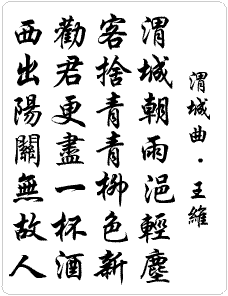 渭城曲・王維
渭城朝雨浥輕塵
客捨青青柳色新
勸君更盡一杯酒
西出陽關無故人